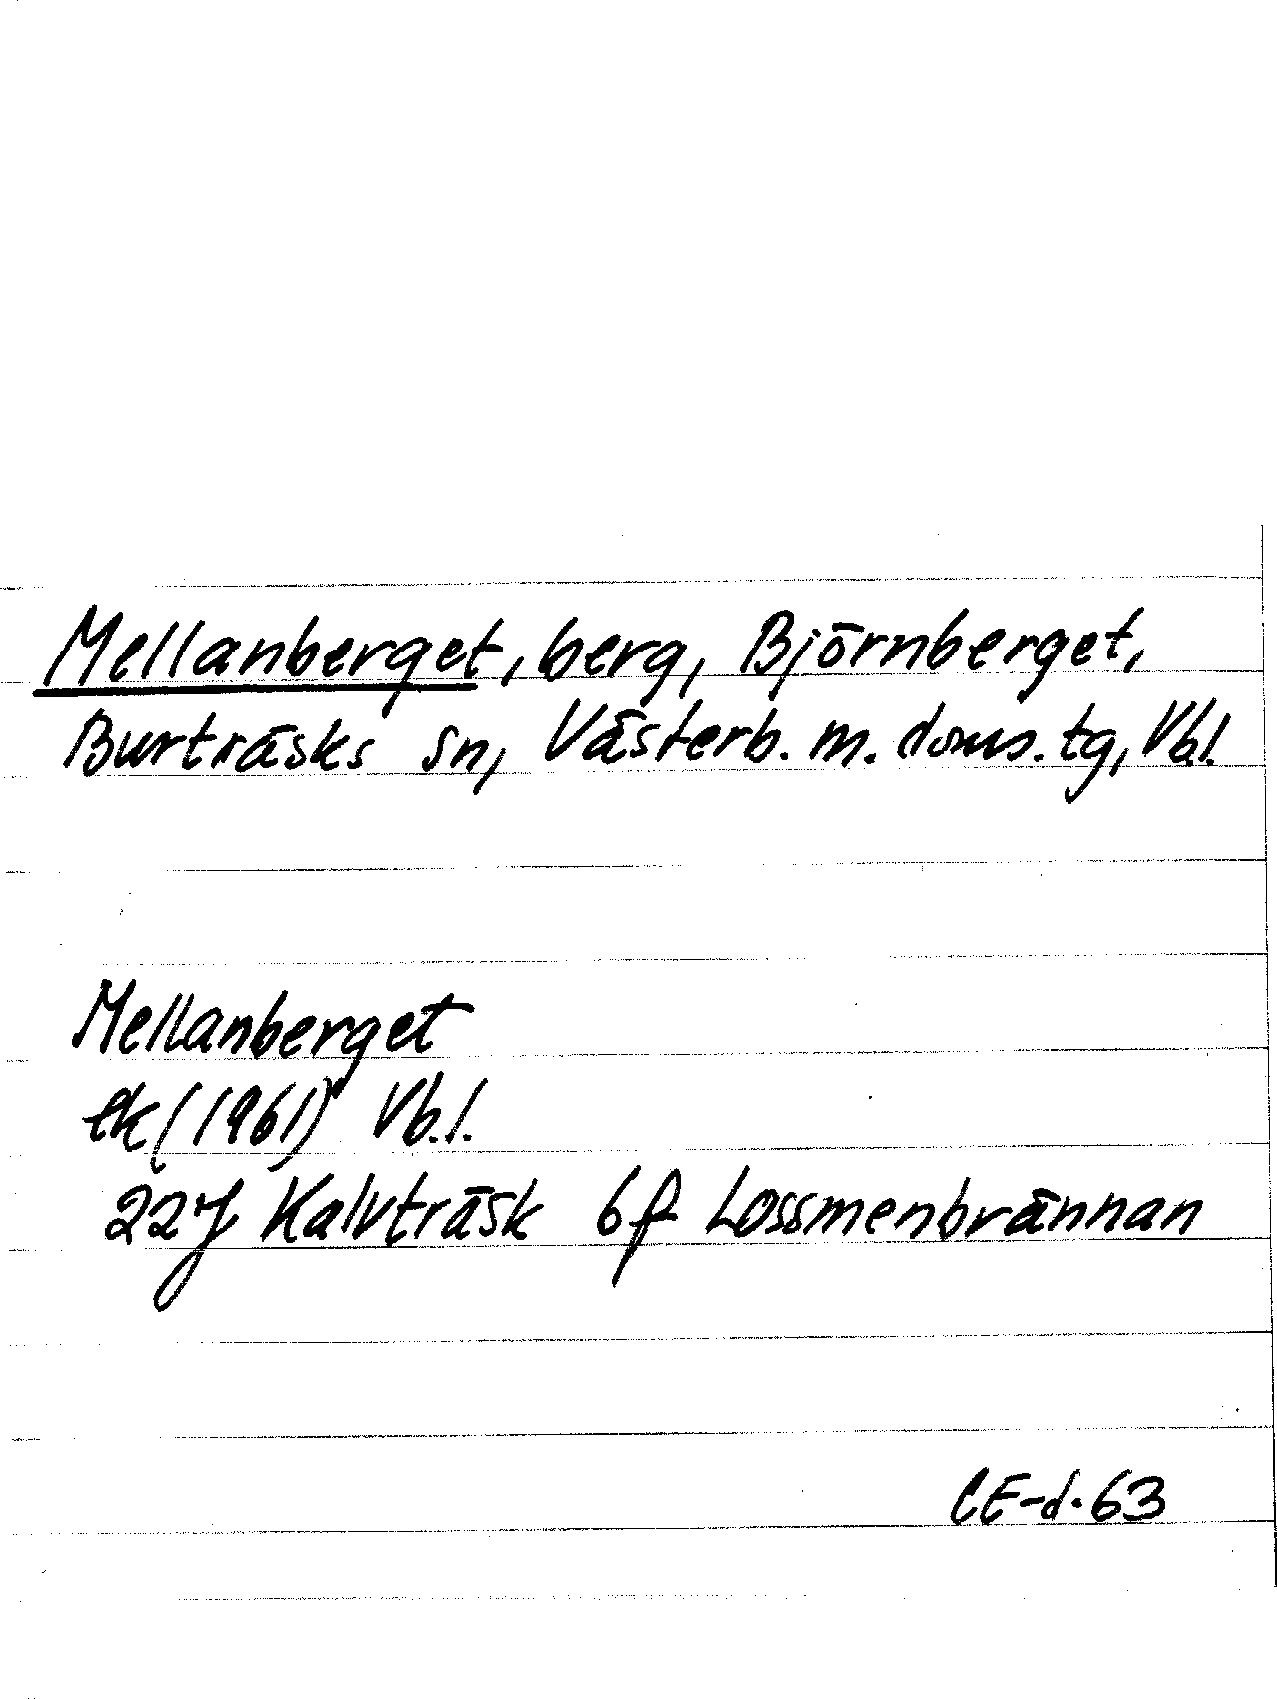 Mellanberget, berg, Björnberget,
Burträsks sn, Västerb. m. doms. tg, Vb.l.
Mellanberget
ek (1961) Vb.l.
22J Kalvträsk 6f Lossmenbrännan
CE-d. 63